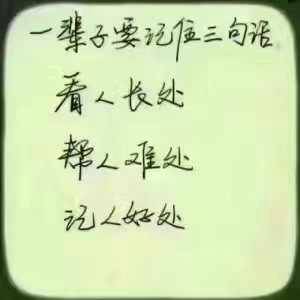 一辈子要记住三句话
看人长处
帮人难处
记人好处